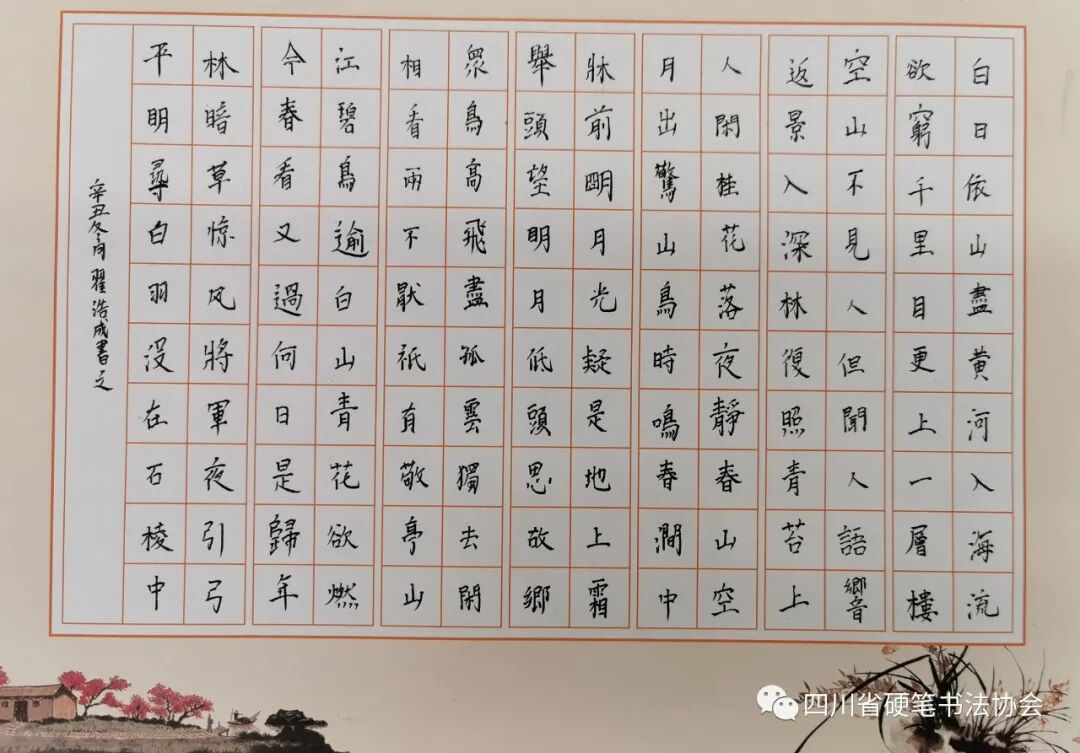 白日依山盡黄河入海流
欲窮千里目更上一層樓
空山不見人但聞人語響
返景入深林復照青苔上
人閑桂花落夜靜春山空
月出驚山鳥時鳴春澗中
牀前明月光疑是地上霜
舉頭望明月低頭思故鄉
眾鳥高飛盡孤雲獨去閑
相看兩不厭祇有敬亭山
江碧鳥逾白山青花欲燃
今春看又過何日是歸年
林暗草惊风將軍夜引弓
平明尋白羽没在石棱中
辛丑冬月翟浩成書之
四川省硬笔书法协会